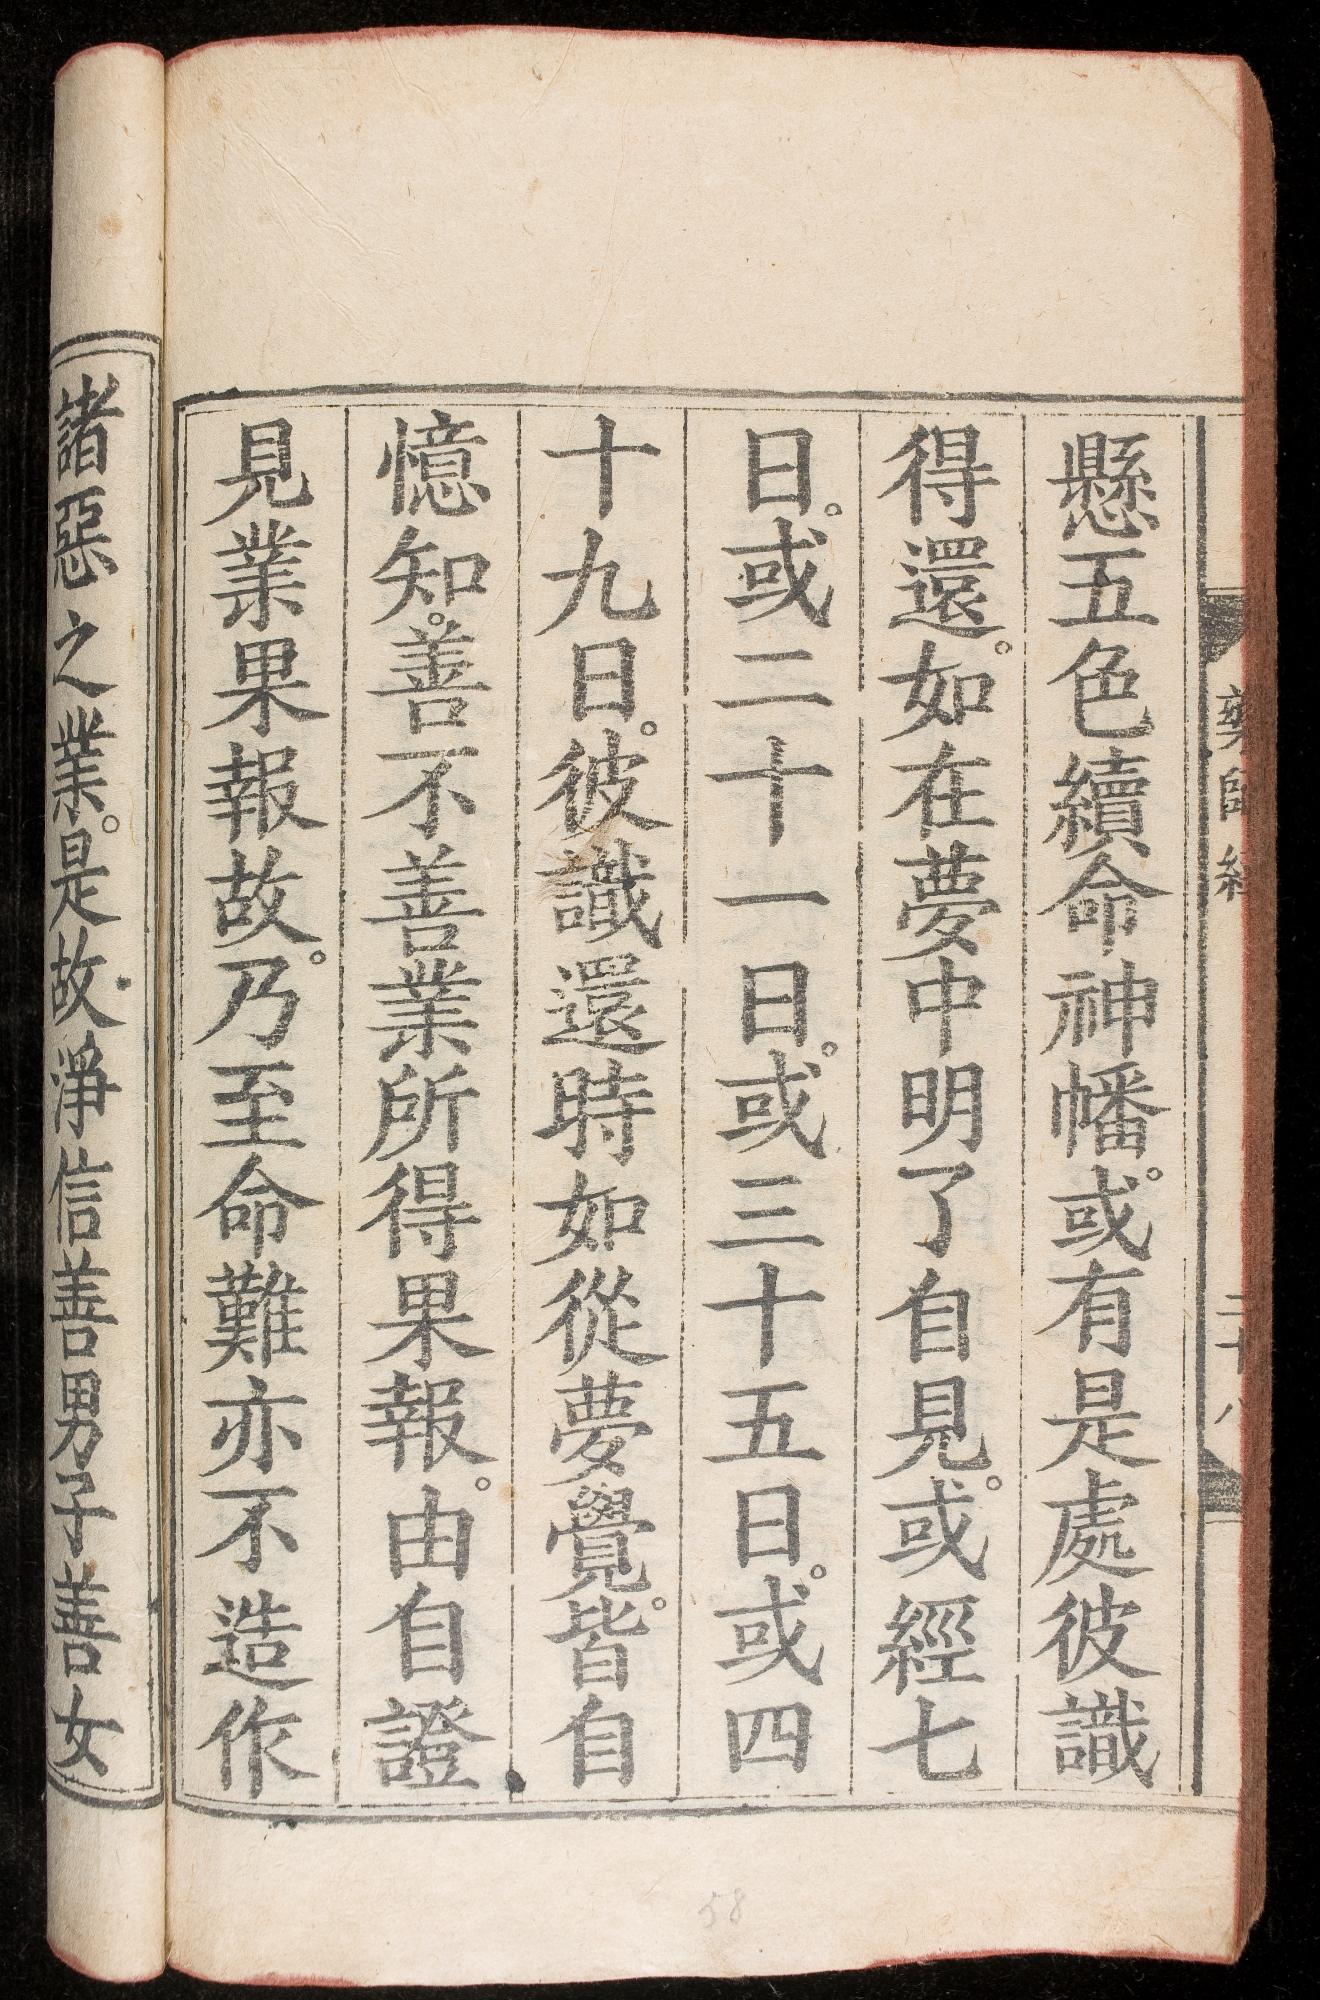 藥師經
二十八
懸五色續命神幡。或有是處彼識
得還。如在夢中明了自見。或經七
日。或二十一日。或三十五日。或四
十九日。彼識還時如從夢覺。皆自
憶知。善不善業所得果報。由自證
見業果報故。乃至命難亦不造作
諸惡之業。是故淨信善男子善女
58